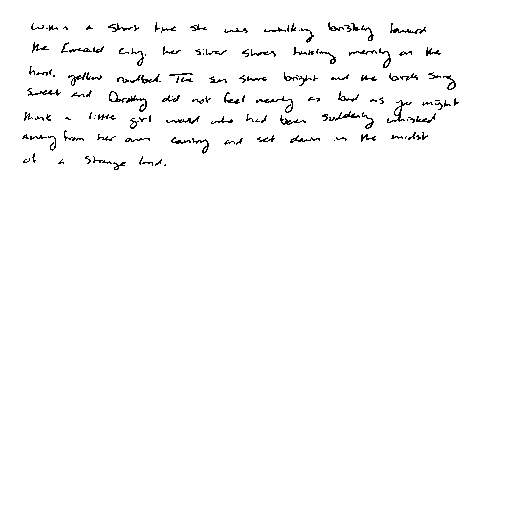 within a short time she was walking briskly toward
the Emerald City, her silver shoes tinkling merrily on the
hard, yellow roadbed. The sun shone bright and the birds sang
sweet and Dorothy did not feel nearly as bad as you might
think a little girl would who had been suddenly whisked
away from her own country and set down in the midst
of a strange land.